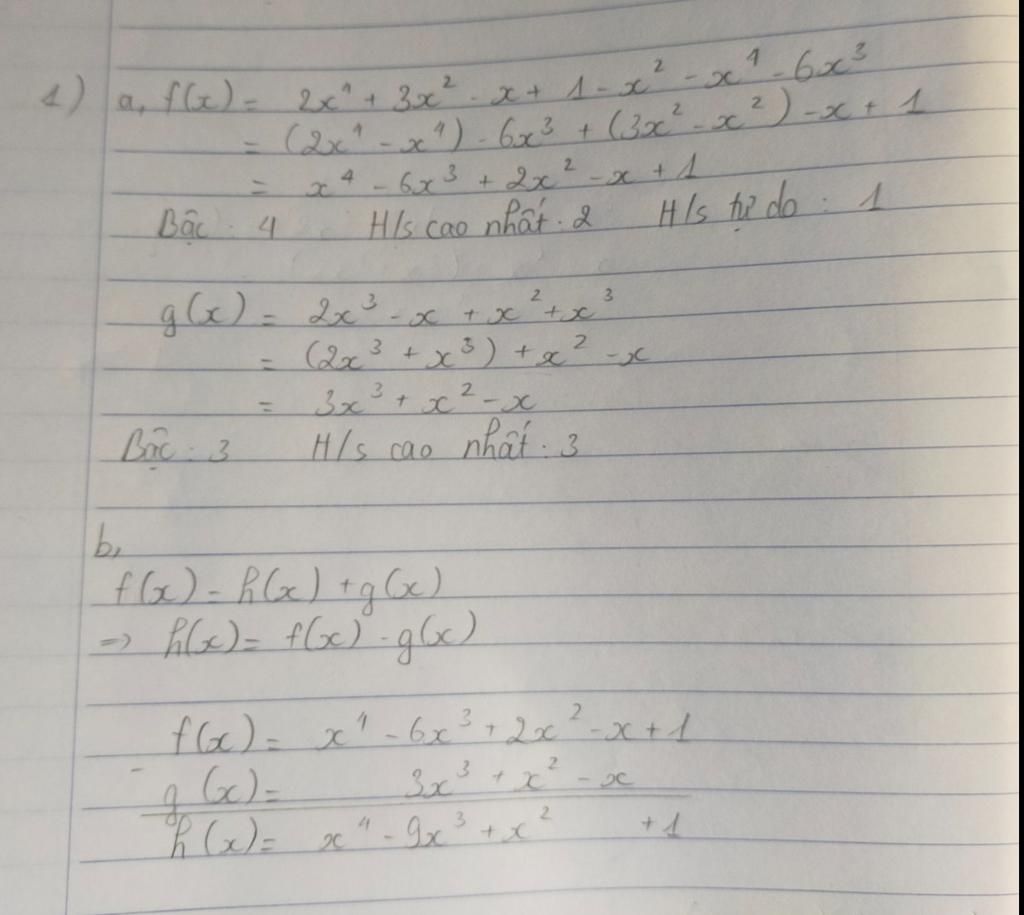 1) a, f(x) = 2x⁴ + 3x² - x + 1 - x² - x⁴ - 6x³
= (2x⁴ - x⁴) - 6x³ + (3x² - x²) - x + 1
= x⁴ - 6x³ + 2x² - x + 1
Bậc : 4 H/s cao nhất : 2 H/s tự do : 1
g(x) = 2x³ - x + x² + x³
= (2x³ + x³) + x² - x
= 3x³ + x² - x
Bậc : 3 H/s cao nhất : 3
b,
f(x) = h(x) + g(x)
=> h(x) = f(x) - g(x)
f(x) = x⁴ - 6x³ + 2x² - x + 1
-
g(x) = 3x³ + x² - x
h(x) = x⁴ - 9x³ + x² + 1